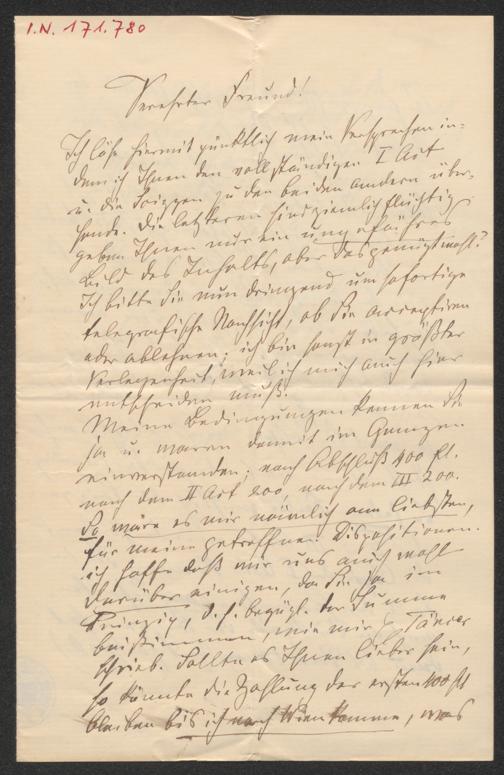 I.N. 171.780
Verehrter Freund!
Ich löse hiermit pünktlich mein Versprechen in-
dem ich Ihnen den vollständigen I Act
u. die Skizzen zu den beiden andern über-
sende. Die letzteren sind ziemlich flüchtig,
geben Ihnen nur ein ungefähres
Bild des Inhalts, aber das genügt wohl?
Ich bitte Sie nun dringend um sofortige
telegrafische Nachricht, ob Sie acceptiren
oder ablehnen; ich bin sonst in größter
Verlegenheit, weil ich mich auch hier
entscheiden muß.
Meine Bedingungen kennen Sie
ja u. waren damit im Ganzen
einverstanden; nach Abschluß 400 fl.
nach dem II Act 200, nach dem III 200.
So wäre es mir nämlich am liebsten,
für meine getroffenen Dispositionen.
ich hoffe daß wir uns auch wohl
darüber einigen, da Sie ja im
Prinzip, d. h. bezügl. der Summe
beistimmen, wie mir H. Täncer
schrieb. Sollte es Ihnen lieber sein,
so könnte die Zahlung der ersten 400 fl
bleiben bis ich nach Wien komme, was